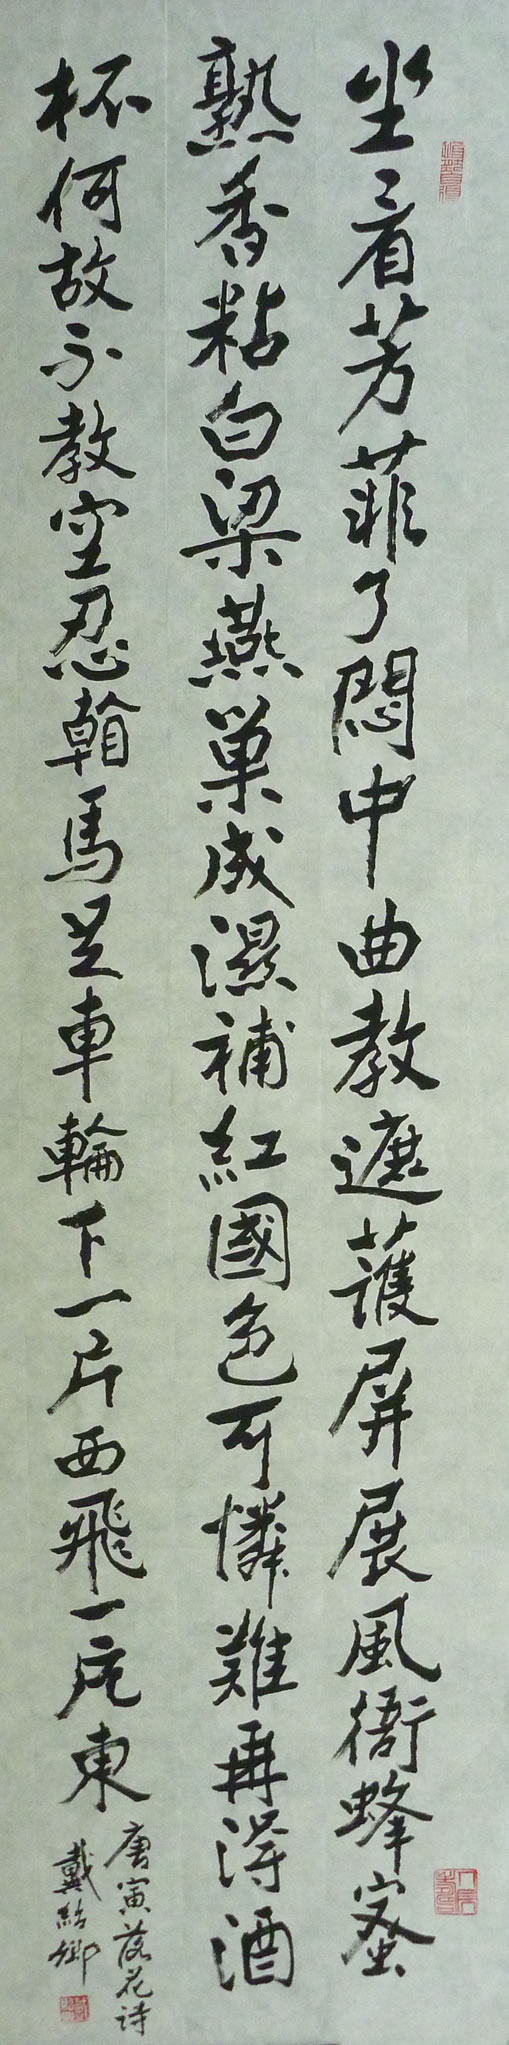 坐看芳菲了悶中曲教遮護屏展風衙蜂蜜
熟香粘白梁燕巢成濕補紅國色可憐難再得酒
杯何故不教空忍翰馬足車輪下一片西飛一片東
唐寅落花詩
戴紹卿